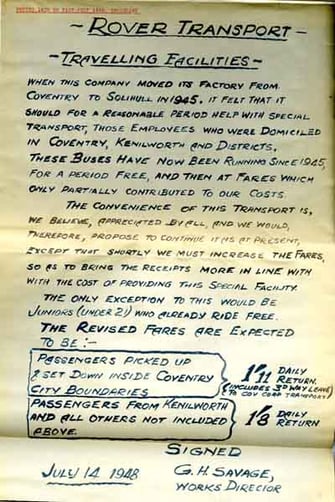 - ROVER TRANSPORT -
- TRAVELLING FACILITIES -
WHEN THIS COMPANY MOVED ITS FACTORY FROM
COVENTRY TO SOLIHULL IN 1945, IT FELT THAT IT
SHOULD FOR A REASONABLE PERIOD HELP WITH SPECIAL
TRANSPORT, THOSE EMPLOYEES WHO WERE DOMICILED
IN COVENTRY, KENILWORTH AND DISTRICTS.
THESE BUSES HAVE NOW BEEN RUNNING SINCE 1945,
FOR A PERIOD FREE, AND THEN AT FARES WHICH
ONLY PARTIALLY CONTRIBUTED TO OUR COSTS.
THE CONVENIENCE OF THIS TRANSPORT IS,
WE BELIEVE, APPRECIATED BY ALL, AND WE WOULD,
THEREFORE, PROPOSE TO CONTINUE IT AS AT PRESENT,
EXCEPT THAT SHORTLY WE MUST INCREASE THE FARES,
SO AS TO BRING THE RECEIPTS MORE IN LINE WITH
WITH THE COST OF PROVIDING THIS SPECIAL FACILITY.
THE ONLY EXCEPTION TO THIS WOULD BE
JUNIORS (UNDER 21) WHO ALREADY RIDE FREE.
THE REVISED FARES ARE EXPECTED
TO BE :-
PASSENGERS PICKED UP
& SET DOWN INSIDE COVENTRY
CITY BOUNDARIES
1'11 DAILY RETURN.
(INCLUDES 3D WAY LEAVE
TO COV CORP TRANSPORT)
PASSENGERS FROM KENILWORTH
AND ALL OTHERS NOT INCLUDED
ABOVE.
1'8 DAILY RETURN
SIGNED
JULY 14 1948
G.H. SAVAGE,
WORKS DIRECTOR